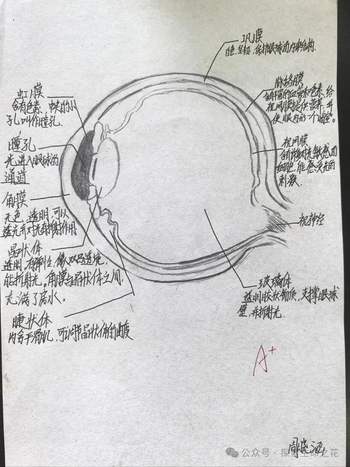 巩膜
白色、坚韧,保护眼球的内部结构
虹膜
含有色素,中央的小
孔叫作瞳孔.
瞳孔
光进入眼球的
通道
角膜
无色,透明,可以
透光
晶状体
透明,有弹性,像双凸透镜,
能折射光,角膜与晶状体之间
充满了房水.
睫状体
内有平滑肌,可以调节晶状体的曲度
脉络膜
给
视网膜提供营养,并
使眼内形成个“暗室”.
视网膜
含有许多对光线敏感的
细胞,能感受光的
刺激.
视神经
玻璃体
透明胶状物质,支撑眼球
壁,并折射光.
A+
公众号·